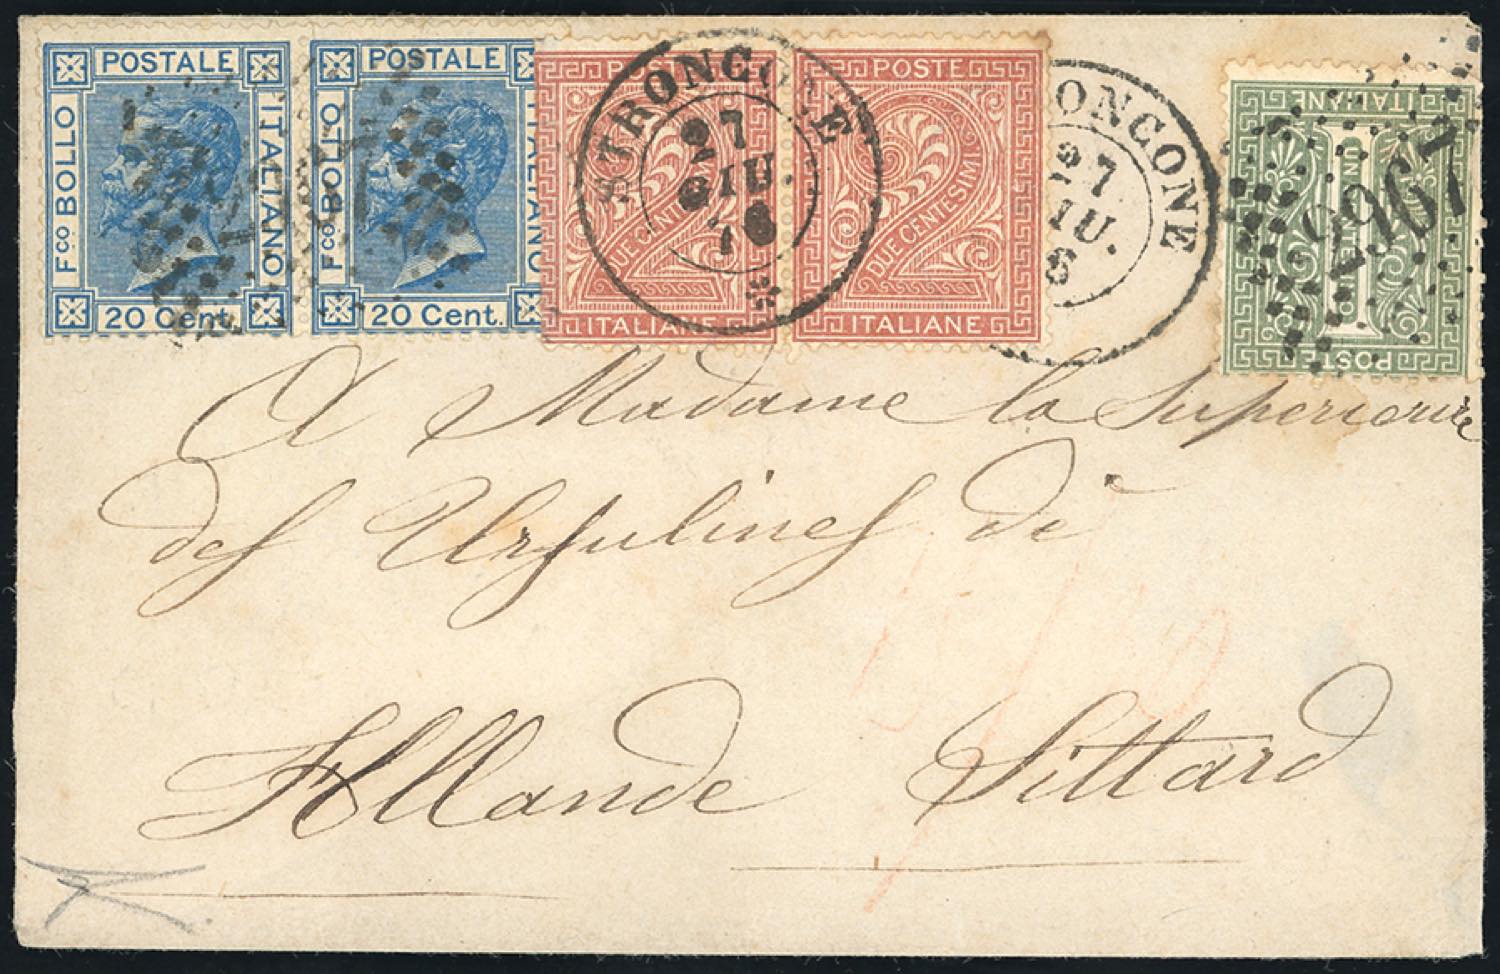 POSTALE
ITALIANO
Fco BOLLO
20 Cent.
POSTALE
ITALIANO
Fco BOLLO
20 Cent.
POSTE
DUE CENTESIMI
2
ITALIANE
POSTE
DUE CENTESIMI
2
ITALIANE
STRONCONE
27
GIU.
76
ONCONE
27
IU.
6
ITALIANE
UN CENTESIMO
1
POSTE
2967
A Madame la Superieure
des Ursulines di
Hollande Sittard